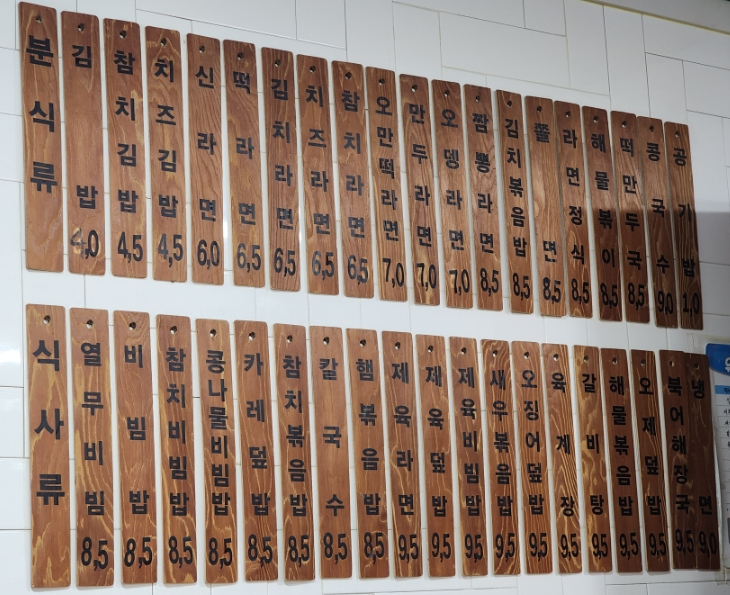 분식류
김밥 4,0
참치김밥 4,5
치즈김밥 4,5
신라면 6,0
떡라면 6,5
김치라면 6,5
치즈라면 6,5
참치라면 6,5
오만떡라면 7,0
만두라면 7,0
오뎅라면 7,0
짬뽕라면 8,5
김치볶음밥 8,5
쫄면 8,5
라면정식 8,5
해물볶이 8,5
떡만두국 8,5
콩국수 9,0
공기밥 1,0
식사류
열무비빔 8,5
비빔밥 8,5
참치비빔밥 8,5
콩나물비빔밥 8,5
카레덮밥 8,5
참치볶음밥 8,5
칼국수 8,5
햄볶음밥 8,5
제육라면 9,5
제육덮밥 9,5
제육비빔밥 9,5
새우볶음밥 9,5
오징어덮밥 9,5
육계장 9,5
갈비탕 9,5
해물볶음밥 9,5
오제덮밥 9,5
북어해장국 9,5
냉면 9,0